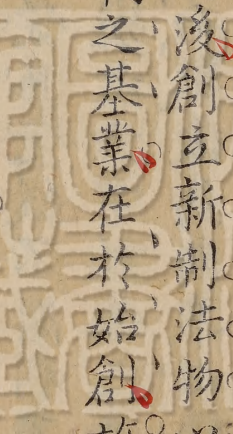 後創立新制法物
之基業在於始創